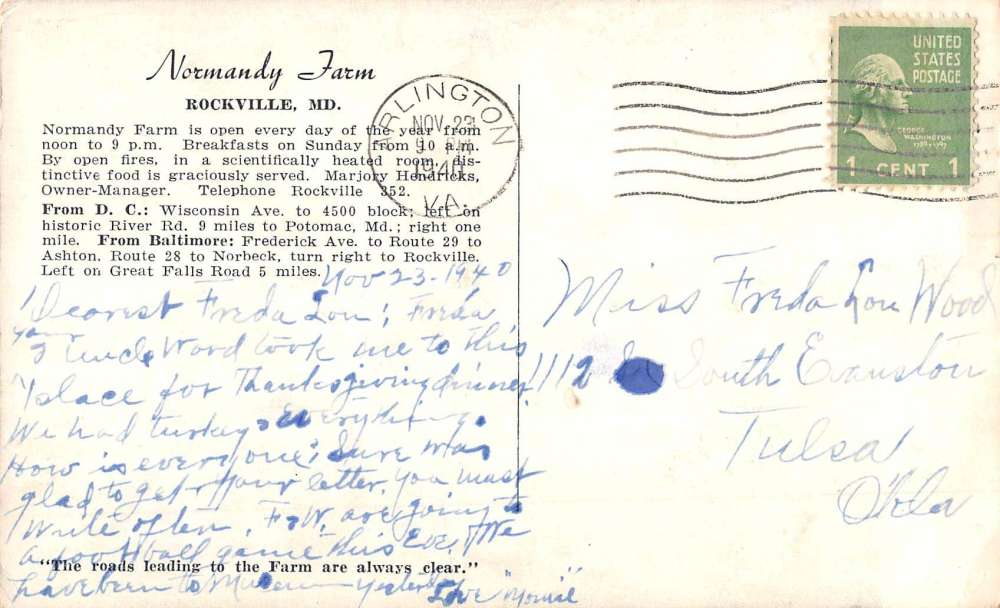 Normandy Farm
ROCKVILLE, MD.
Normandy Farm is open every day of the year from
noon to 9 p.m. Breakfasts on Sunday from 10 a.m.
By open fires, in a scientifically heated room, dis-
tinctive food is graciously served. Marjory Hendricks,
Owner-Manager. Telephone Rockville 352.
From D. C.: Wisconsin Ave. to 4500 block; left on
historic River Rd. 9 miles to Potomac, Md.; right one
mile. From Baltimore: Frederick Ave. to Route 29 to
Ashton. Route 28 to Norbeck, turn right to Rockville.
Left on Great Falls Road 5 miles.
Nov 23-1940
Dearest Freda Lou; Freda
your
& Uncle Word took me to this
place for Thanksgiving dinner!
We had turkey & everything.
How is everyone? Sure was
glad to get your letter. You must
write often. F&W. are going to
a football game this Eve. We
"The roads leading to the Farm are always clear."
have been to Museum yesterday
Love
ARLINGTON
NOV 23
PM
1940
VA.
UNITED
STATES
POSTAGE
GEORGE
WASHINGTON
1789-1797
1 CENT 1
Miss Freda Lou Wood
1112 South Evanston
Tulsa
Okla